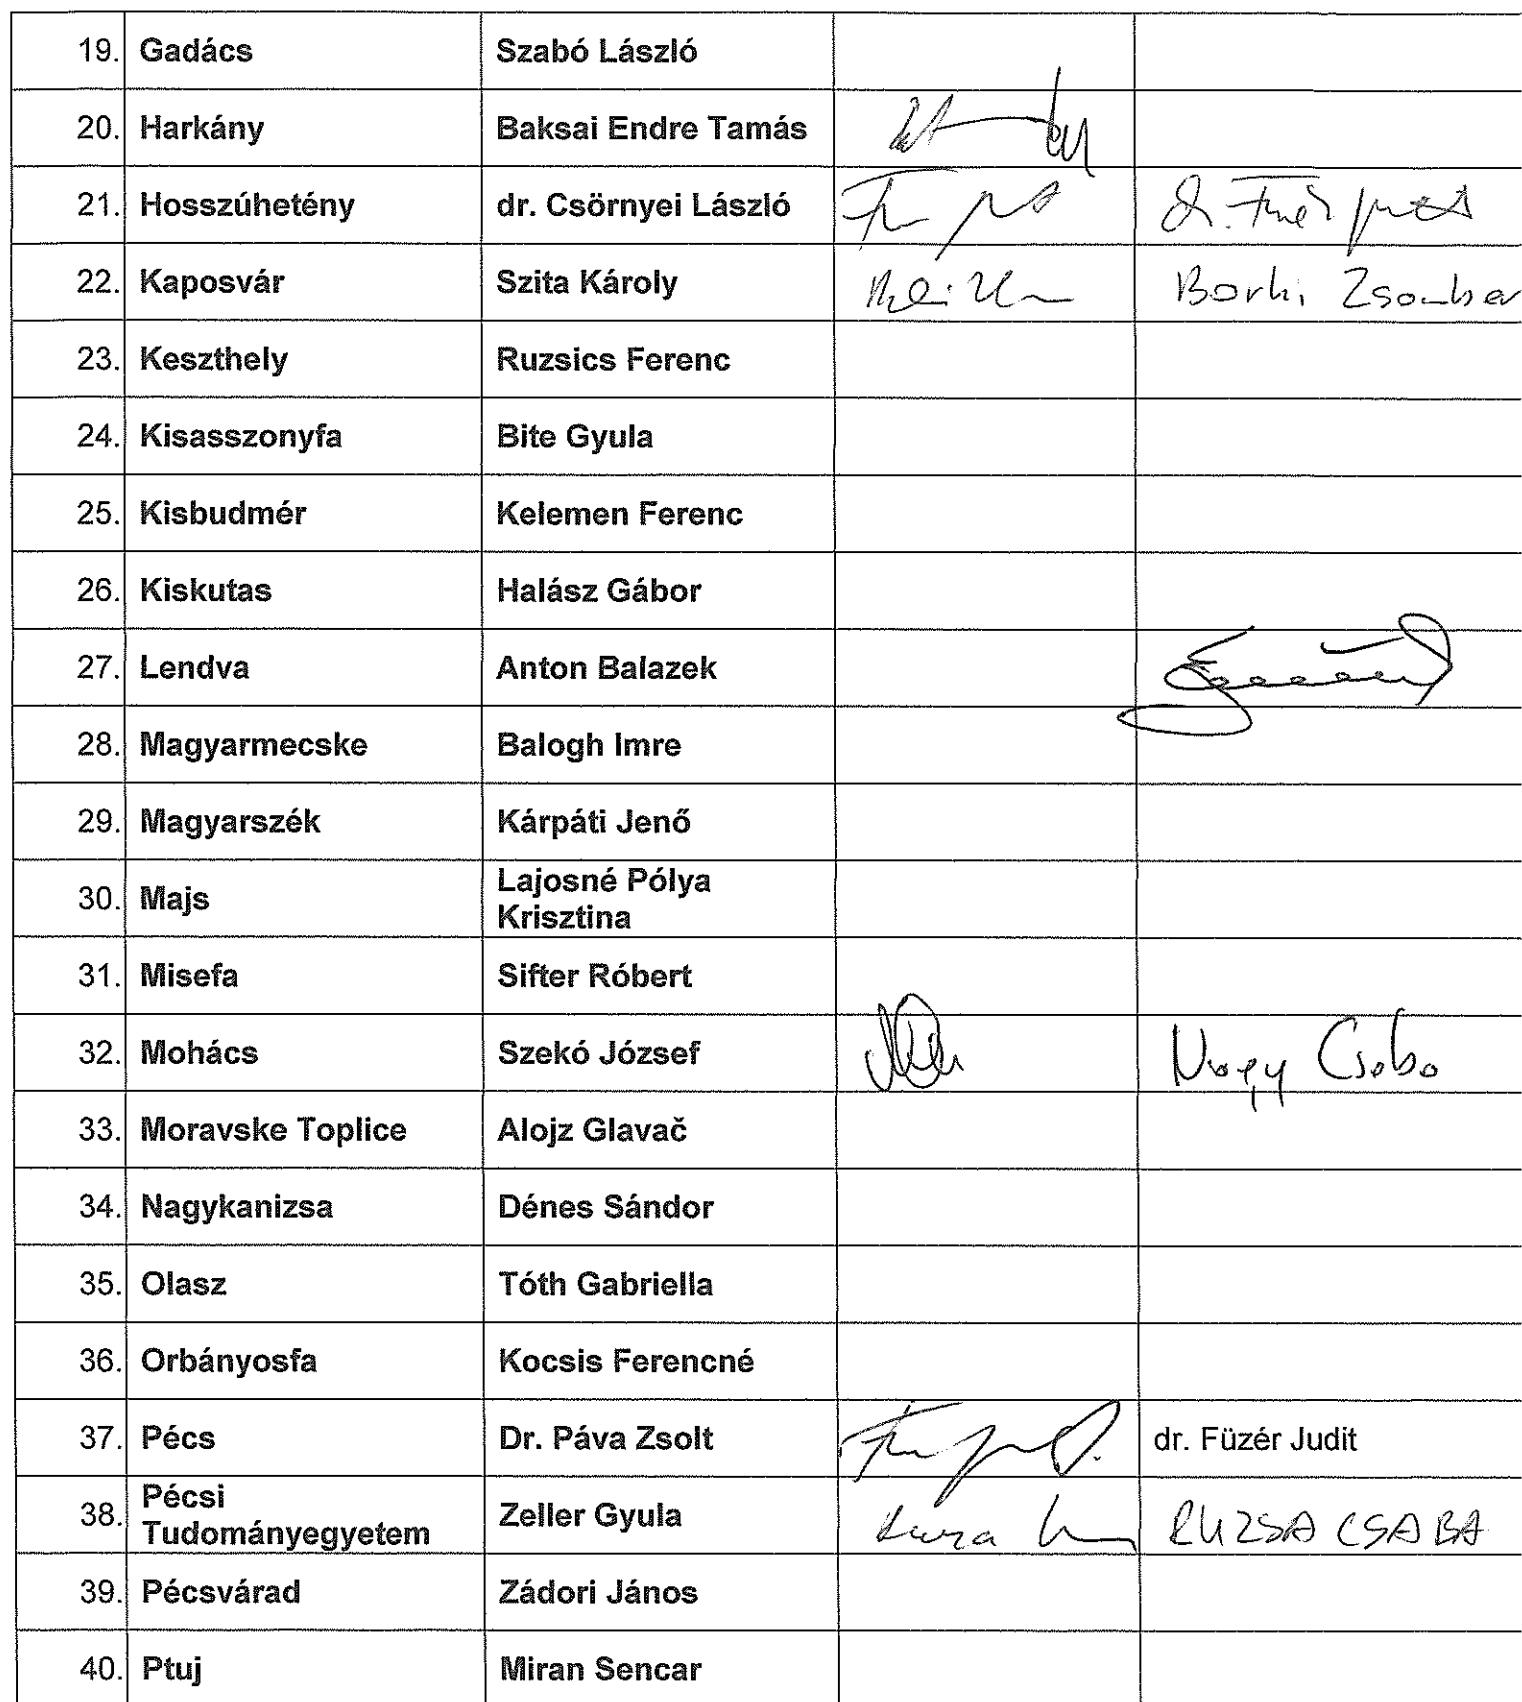 19. Gadács Szabó László
20. Harkány Baksai Endre Tamás
21. Hosszúhetény dr. Csörnyei László dr. Füzér Judit
22. Kaposvár Szita Károly Borhi Zsombor
23. Keszthely Ruzsics Ferenc
24. Kisasszonyfa Bite Gyula
25. Kisbudmér Kelemen Ferenc
26. Kiskutas Halász Gábor
27. Lendva Anton Balazek
28. Magyarmecske Balogh Imre
29. Magyarszék Kárpáti Jenő
30. Majs Lajosné Pólya
Krisztina
31. Misefa Sifter Róbert
32. Mohács Szekó József Nagy Csaba
33. Moravske Toplice Alojz Glavač
34. Nagykanizsa Dénes Sándor
35. Olasz Tóth Gabriella
36. Orbányosfa Kocsis Ferencné
37. Pécs Dr. Páva Zsolt dr. Füzér Judit
38. Pécsi
Tudományegyetem Zeller Gyula RUZSA CSABA
39. Pécsvárad Zádori János
40. Ptuj Miran Sencar